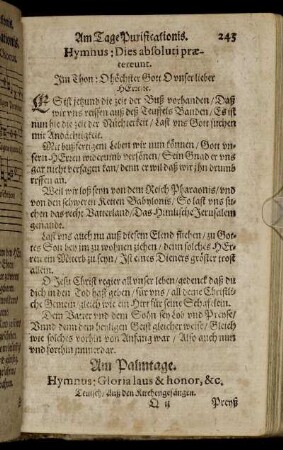 Am Tage Purificationis. 243
Hymnus: Dies absoluti præ-
tereunt.
Im Thon: O höchster Gott O vnser lieber
HErre.
ES ist jetzund die zeit der Buß vorhanden / Daß
wir vns reissen auß deß Teuffels Banden / Es ist
nun hie die zeit der Nüchterkeit / Last vns Gott suchen
mit Andächtigkeit.
Mit bußfertigem Leben wir nun können / Gott vn-
sern HErren widerumb versönen / Sein Gnad er vns
gar nicht versagen kan / denn er wil daß wir jhn drumb
rüffen an.
Weil wir loß seyn von dem Reich Pharaonis / vnd
von den schweren Ketten Babylonis / So last vns su-
chen das recht Vatterland / Das Himlische Jerusalem
genandt.
Last vns auch nu auß diesem Elend fliehen / zu Got-
tes Son bey jm zu wohnen ziehen / denn solches HEr-
ren ein Miterb zu seyn / Ist eines Dieners gröster trost
allein.
O Jesu Christ regier all vnser leben / gedenck daß du
dich in den Tod hast geben / für vns / all deine Christli-
che Gemein / gleich wie ein Hirt für seine Schäflein.
Dem Vater vnd dem Sohn sey Lob vnd Preise /
Vnnd dem dem heyligen Geist gleicher weise / Gleich
wie solches vorhin von Anfang war / Also auch nun
vnd forthin immerdar.
Am Palmtage.
Hymnus: Gloria laus & honor, &c.
Teutsch / Auß den Kirchengesängen.
Q ij Preyß